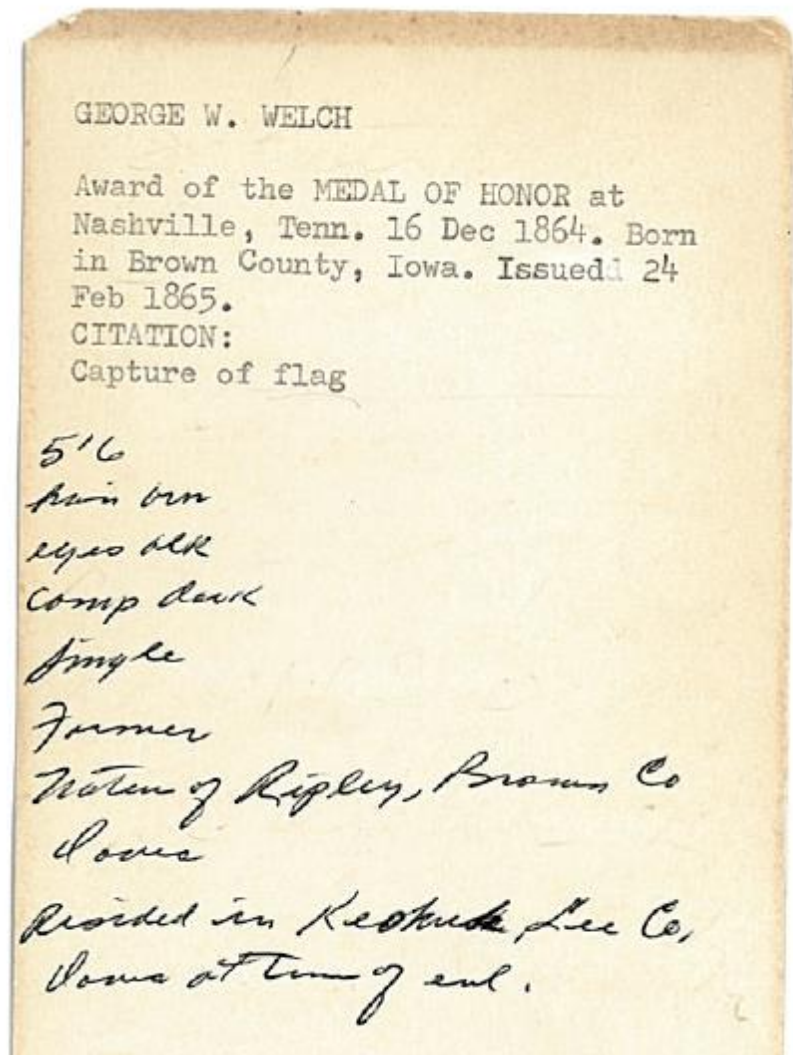 GEORGE W. WELCH
Award of the MEDAL OF HONOR at
Nashville, Tenn. 16 Dec 1864. Born
in Brown County, Iowa. Issuedd 24
Feb 1865.
CITATION:
Capture of flag
5'6
hair brn
eyes blk
comp dark
single
Farmer
Native of Ripley, Brown Co
Iowa
Resided in Keokuk Lee Co,
Iowa at time of enl.